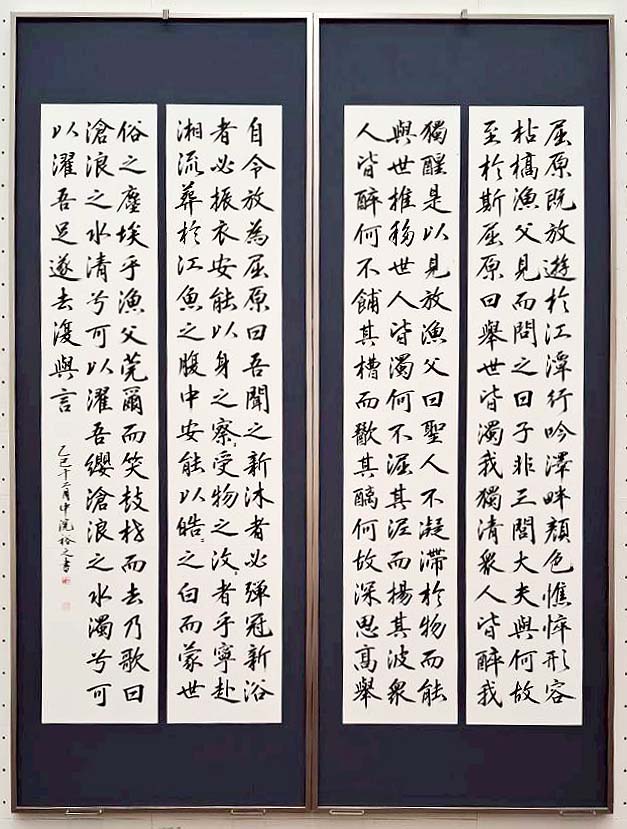 屈原既放遊於江潭行吟澤畔顏色憔悴形容
枯槁漁父見而問之曰子非三閭大夫與何故
至於斯屈原曰舉世皆濁我獨清衆人皆醉我
獨醒是以見放漁父曰聖人不凝滯於物而能
與世推移世人皆濁何不淈其泥而揚其波衆
人皆醉何不餔其糟而歠其醨何故深思高舉
自令放為屈原曰吾聞之新沐者必彈冠新浴
者必振衣安能以身之察〻受物之汶〻者乎寧赴
湘流葬於江魚之腹中安能以皓〻之白而蒙世
俗之塵埃乎漁父莞爾而笑鼓枻而去乃歌曰
滄浪之水清兮可以濯吾纓滄浪之水濁兮可
以濯吾足遂去復與言
乙巳十二月中浣裕之書